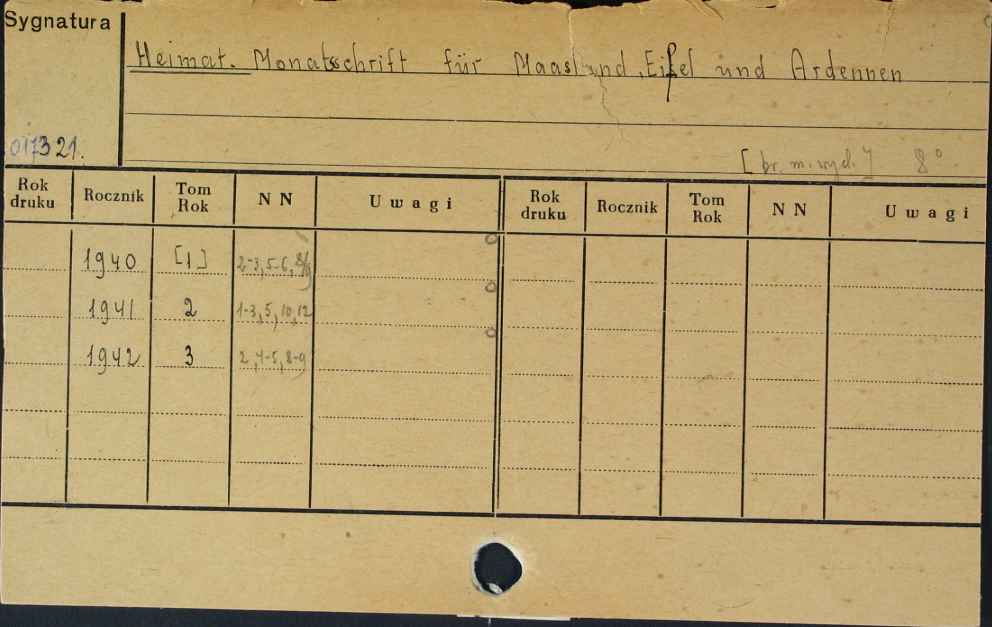 Sygnatura
Heimat. Monatsschrift für Maasland, Eifel und Ardennen
017321.
[br. m. wyd.] 8°
Rok druku Rocznik Tom Rok NN Uwagi Rok druku Rocznik Tom Rok NN Uwagi
1940 [1] 2-3, 5-6, 8/9
1941 2 1-3, 5, 10, 12
1942 3 2, 4-5, 8-9